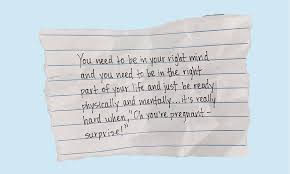 You need to be in your right mind
and you need to be in the right
part of your life and just be ready
physically and mentally...it's really
hard when, "Oh you're pregnant -
surprise!"